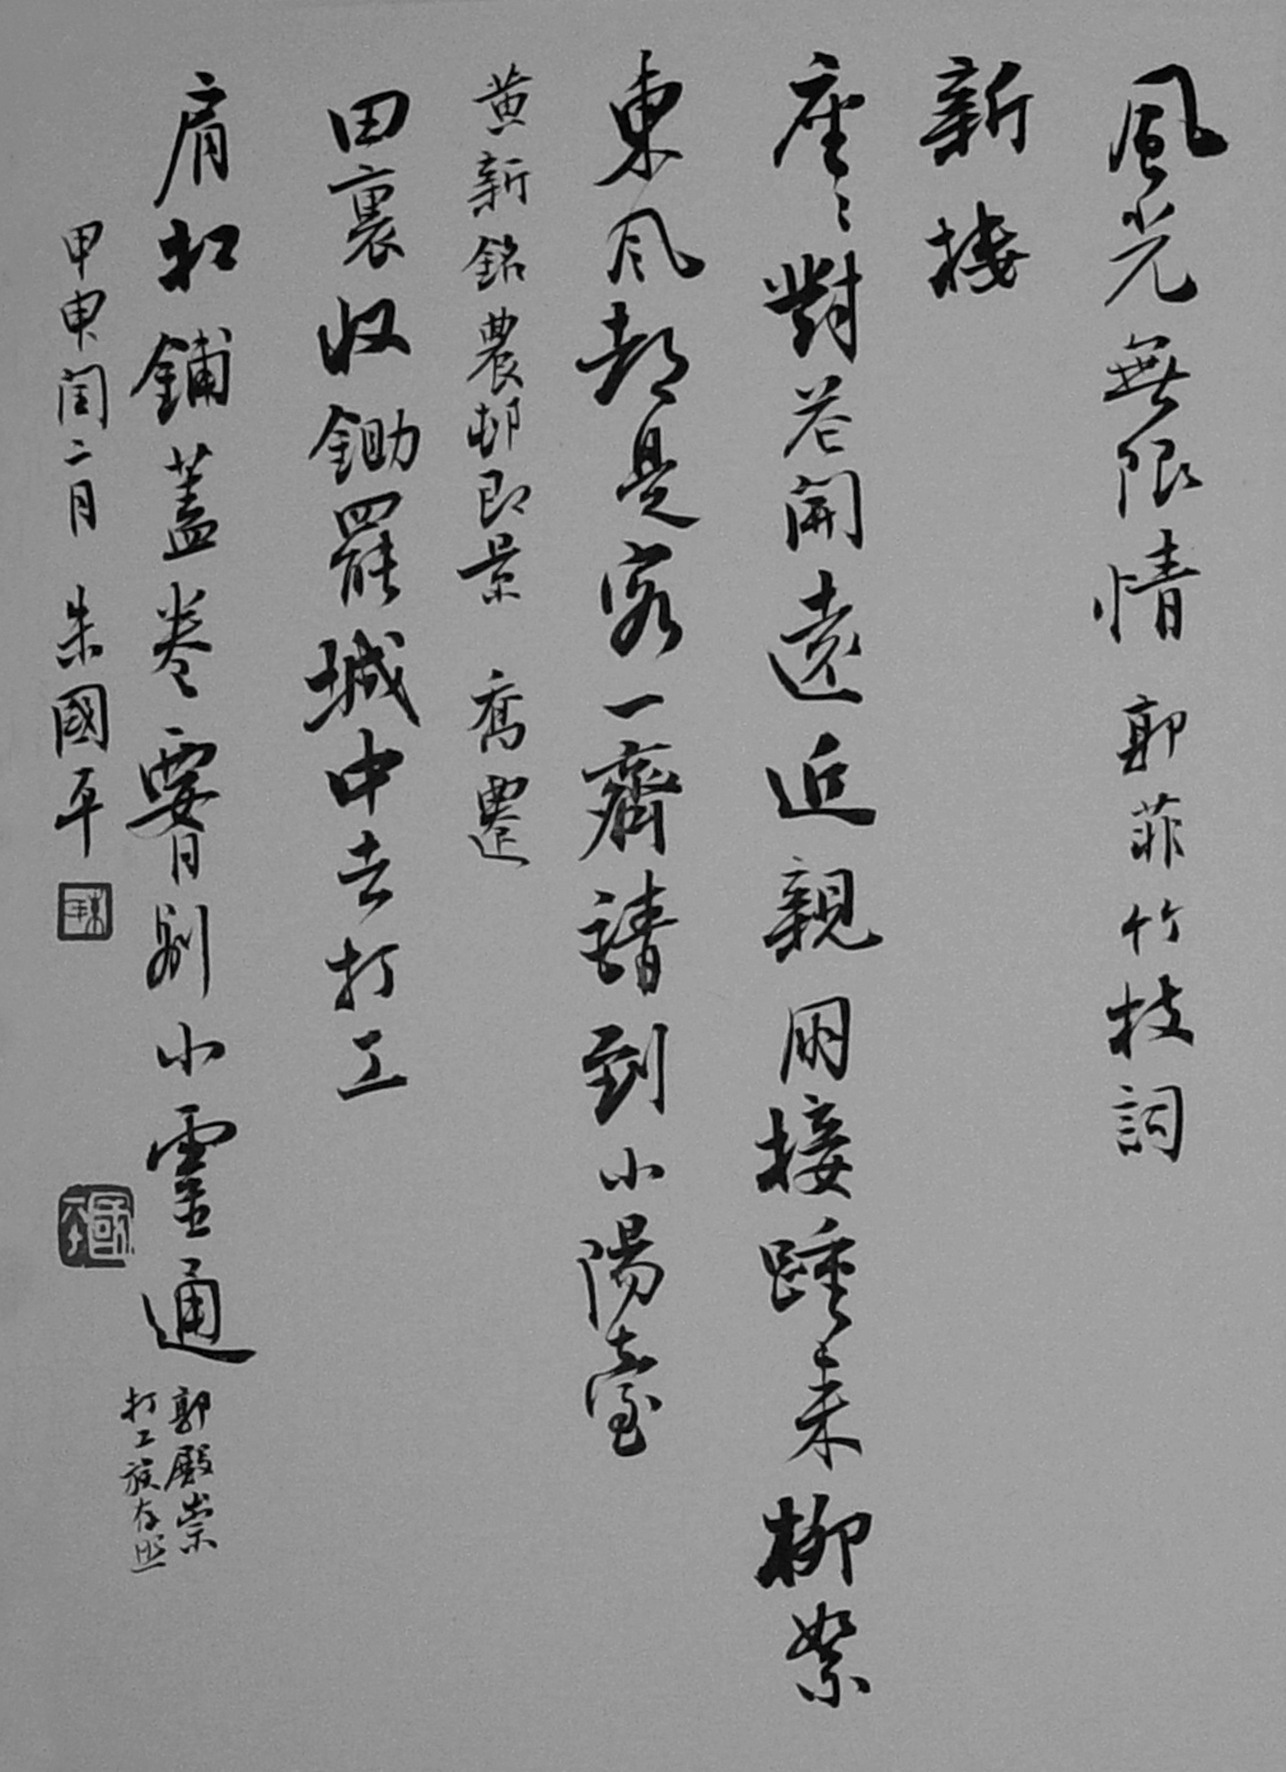 風光無限情 郭菲竹枝詞
新楼
座々對花開遠近親朋接踵来柳絮
東风都是客一齊請到小陽臺
黄新銘農邨即景 喬遷
田裏收鋤罷城中去打工
肩扛鋪蓋卷腰別小靈通
郭殿崇
打工族存照
甲申閏二月 朱國平